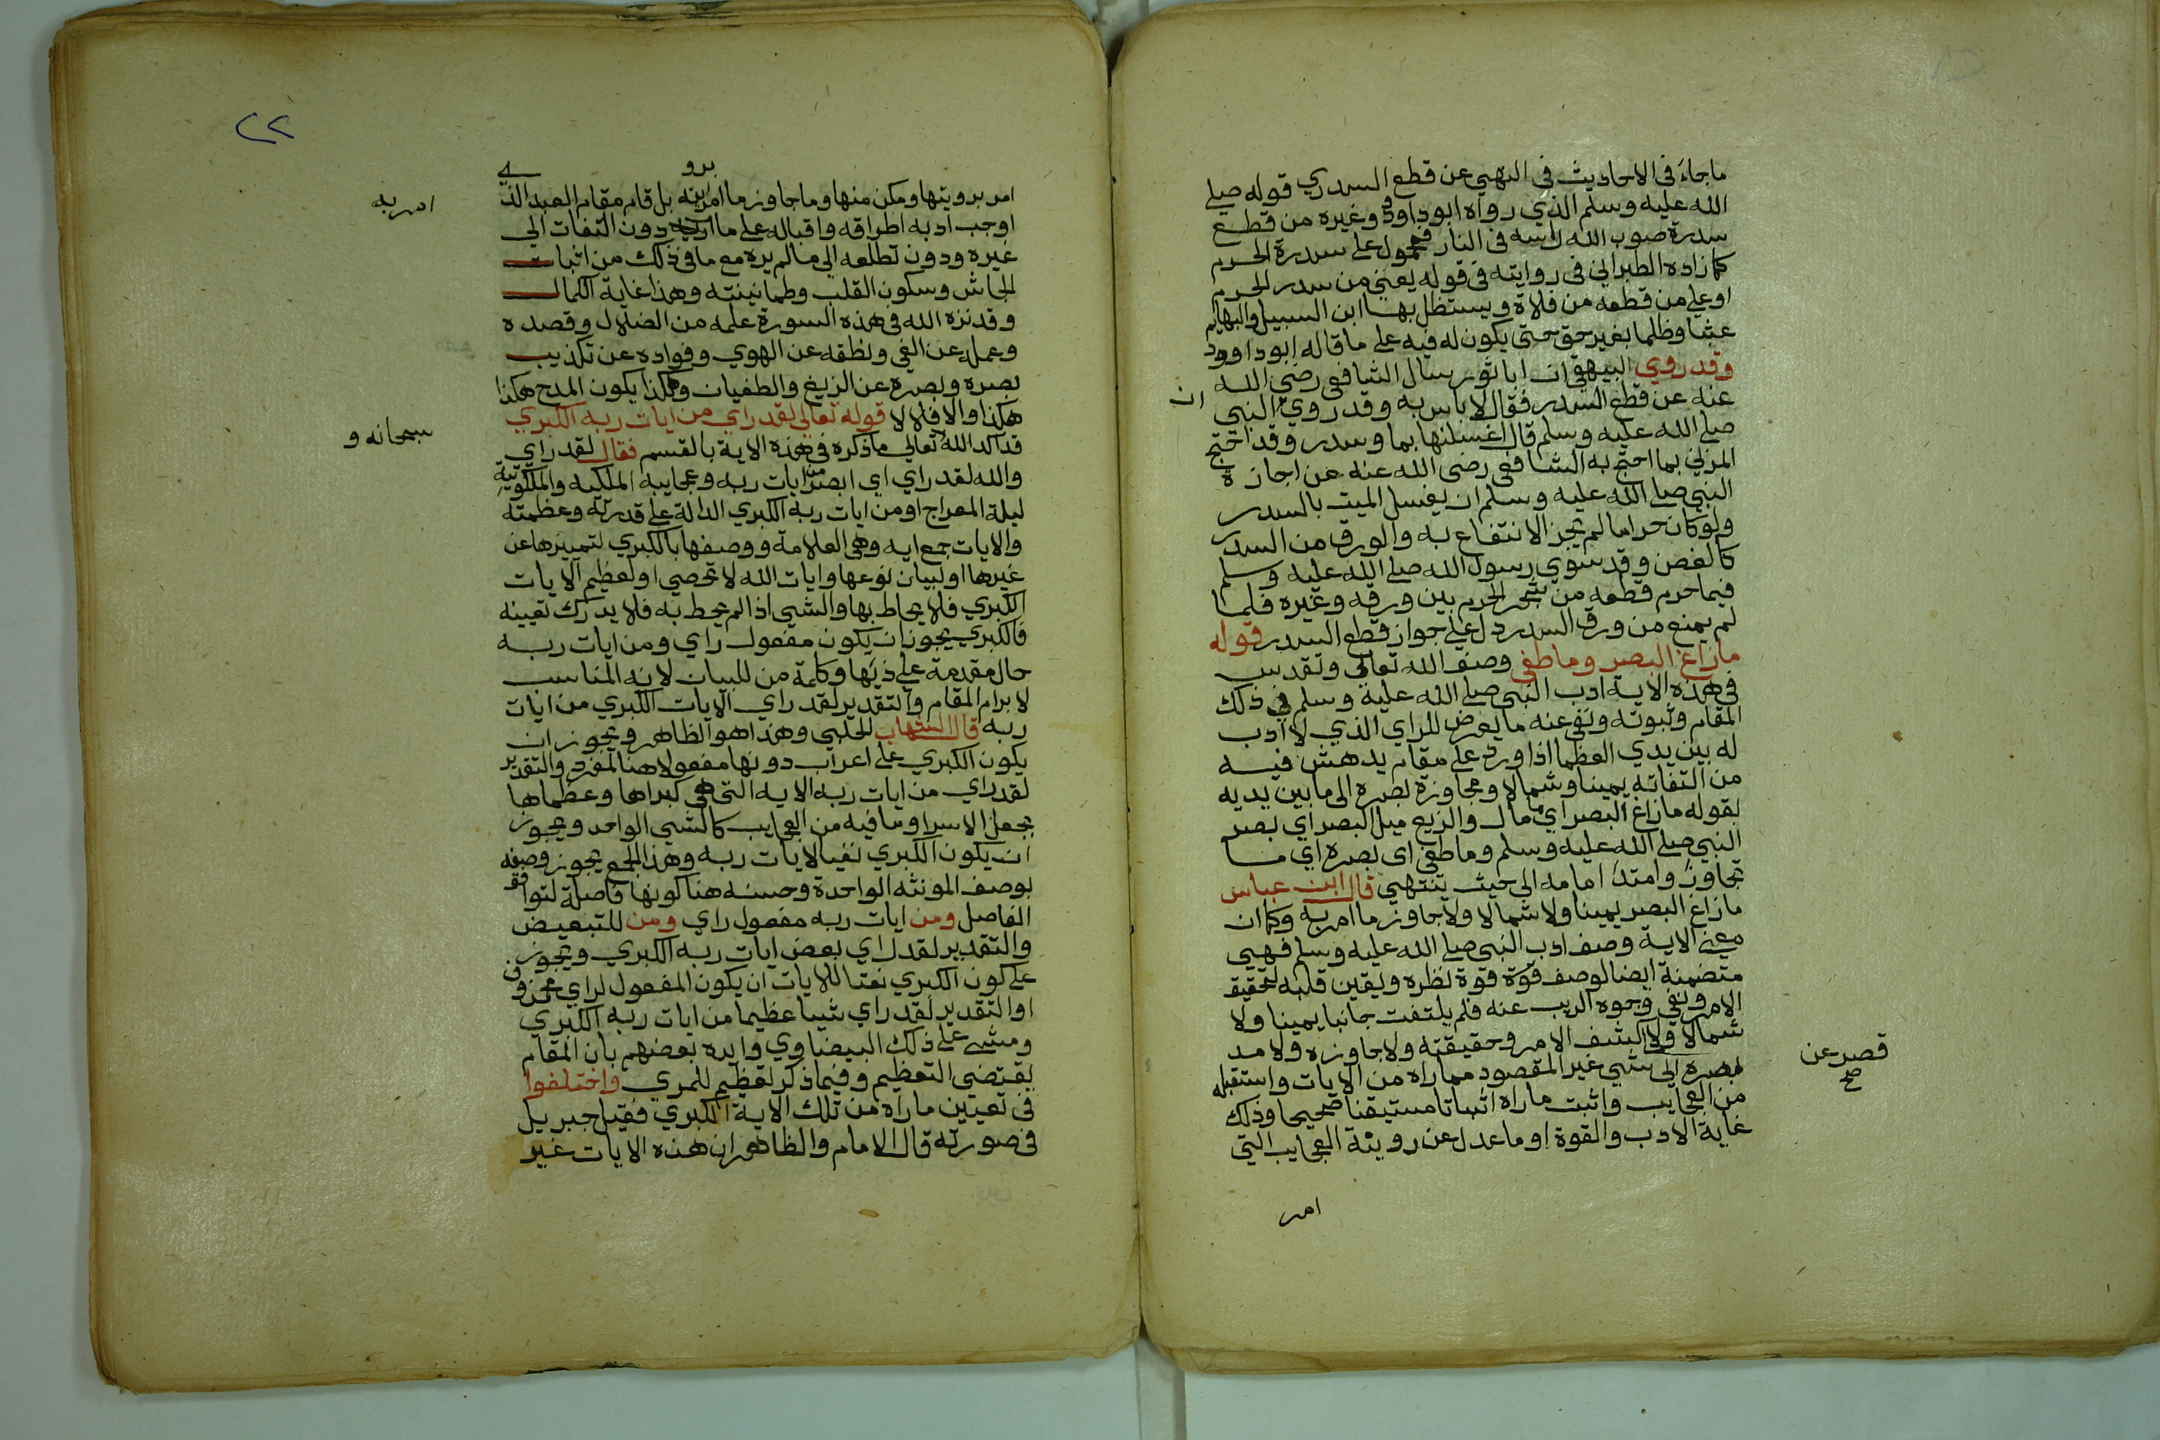 ما جاء في الاحاديث في النهي عن قطع السدر في قوله صلي
الله عليه وسلم الذي رواه ابو داود وغيره من قطع
سدرة صوب الله راسه في النار فمحمول علي سدرة الحرم
كما زاده الطبراني في روايته في قوله يعني من سدر الحرم
او علي من قطعه من فلاة ويستظل بها ابن السبيل والبهايم
عبثا وظلما بغير حق حتي يكون له فيه علي ما قاله ابو داود
وقد روي البيهقي ان ابا ثور سال الشافعي رضي الله
عنه عن قطع السدر فقال لا باس به وقد روي ان النبي
صلي الله عليه وسلم قال اغسلنها بما وسدر وقد احتج
المزني بما احتج به الشافعي رضي الله عنه عن اجازة
النبي صلي الله عليه وسلم ان يغسل الميت بالسدر
ولو كان حراما لم يجز الانتفاع به والورق من السدر
كالغصن وقد سوي رسول الله صلي الله عليه وسلم
فيما حرم قطعه من شجر الحرم بين ورقه وغيره فلما
لم يمنع من ورق السدر دل علي جواز قطع السدر قوله
ما زاغ البصر وما طغي وصف الله تعالي وتقدس
في هذه الاية ادب النبي صلي الله عليه وسلم في ذلك
المقام وثبوته ونفي عنه ما يعرض للراي الذي لا ادب
له بين يدي العظما اذا ورد علي مقام يدهش فيه
من التفاته يمينا وشمالا ومجاوزة بصره الي ما بين يديه
بقوله ما زاغ البصر اي ما مال والزيغ ميل البصر اي بصر
النبي صلي الله عليه وسلم وما طغي اي بصره اي ما
تجاوز وامتد امامه الي حيث ينتهي قال ابن عباس
ما زاغ البصر يمينا ولا شمالا ولا جاوز ما امر به وكما ان
معني الاية وصف ادب النبي صلي الله عليه وسلم فهي
متضمنة ايضا لوصف قوة قوة نظره ويقين قلبه لتحقيق
الامر ونفي وجوه الريب عنه فلم يلتفت جانبا يمينا ولا
شمالا ولا كشف الامر وحقيقته ولا جاوزه ولا مد
قصر عن
صح
بصره الي شي غير المقصود مما راه من الايات واستقبله
من العجايب واثبت ما راه اثباتا مستيقنا صحيحا وذلك
غاية الادب والقوة او ما عدل عن روية العجايب التي
امر
٢٢
امر برويتها ومكن منها وما جاوز ما امر برويته بل قام مقام العبد الذي
امر به
اوجب ادبه اطراقه واقباله علي ما اريه دون التفات الي
غيره ودون تطلعه الي ما لم يره مع ما في ذلك من اثبات
الجاش وسكون القلب وطمانينته وهذا غاية الكمال
وقد نزه الله في هذه السورة علمه من الضلال وقصده
وعمله عن الغي ونطقه عن الهوي وفواده عن تكذيب
بصره وبصره عن الزيغ والطغيان وهكذا يكون المدح هكذا
هكذا والا فلا لا قوله تعالي لقد راي من ايات ربه الكبري
سبحانه و
قد اكد الله تعالي ما ذكره في هذه الاية بالقسم فقال لقد راي
والله لقد راي اي ابصر من ايات ربه وعجايبه الملكية والملكوتية
ليلة المعراج او من ايات ربه الكبري الدالة علي قدرته وعظمته
والايات جمع اية وهي العلامة ووصفها بالكبري لتمييزها عن
غيرها او لبيان نوعها وايات الله لا تحصي او لعظيم الايات
الكبري فلا يحاط بها والشي اذا لم يحط به فلا يدرك تعيينه
فالكبري يجوز ان يكون مفعول راي ومن ايات ربه
حال مقدمة علي ذيها وكلمة من للبيان لانه المناسب
لابرام المقام والتقدير لقد راي الايات الكبري من ايات
ربه قال الشهاب الحلبي وهذا هو الظاهر ويجوز ان
يكون الكبري علي اعراب دونها مفعولا هنا لمفرد والتقدير
لقد راي من ايات ربه الاية التي هي كبراها وعظماها
بجعل الاسرا وما فيه من العجايب كالشي الواحد ويجوز
ان يكون الكبري نعتا لايات ربه وهذا الجمع يجوز وصفه
بوصف المونثه الواحدة وحسنه هنا كونها فاصلة لتوافق
الفاصل ومن ايات ربه مفعول راي ومن للتبعيض
والتقدير لقد راي بعض ايات ربه الكبري ويجوز
علي كون الكبري نعتا للايات ان يكون المفعول لراي محذوف
او التقدير لقد راي شيا عظيما من ايات ربه الكبري
ومشي علي ذلك البيضاوي وايده بعضهم بان المقام
يقتضي التعظيم وفيما ذكر تعظيم للمري واختلفوا
في تعيين ما راه من تلك الاية الكبري فقيل جبريل
في صورته قال الامام والظاهر ان هذه الايات غير